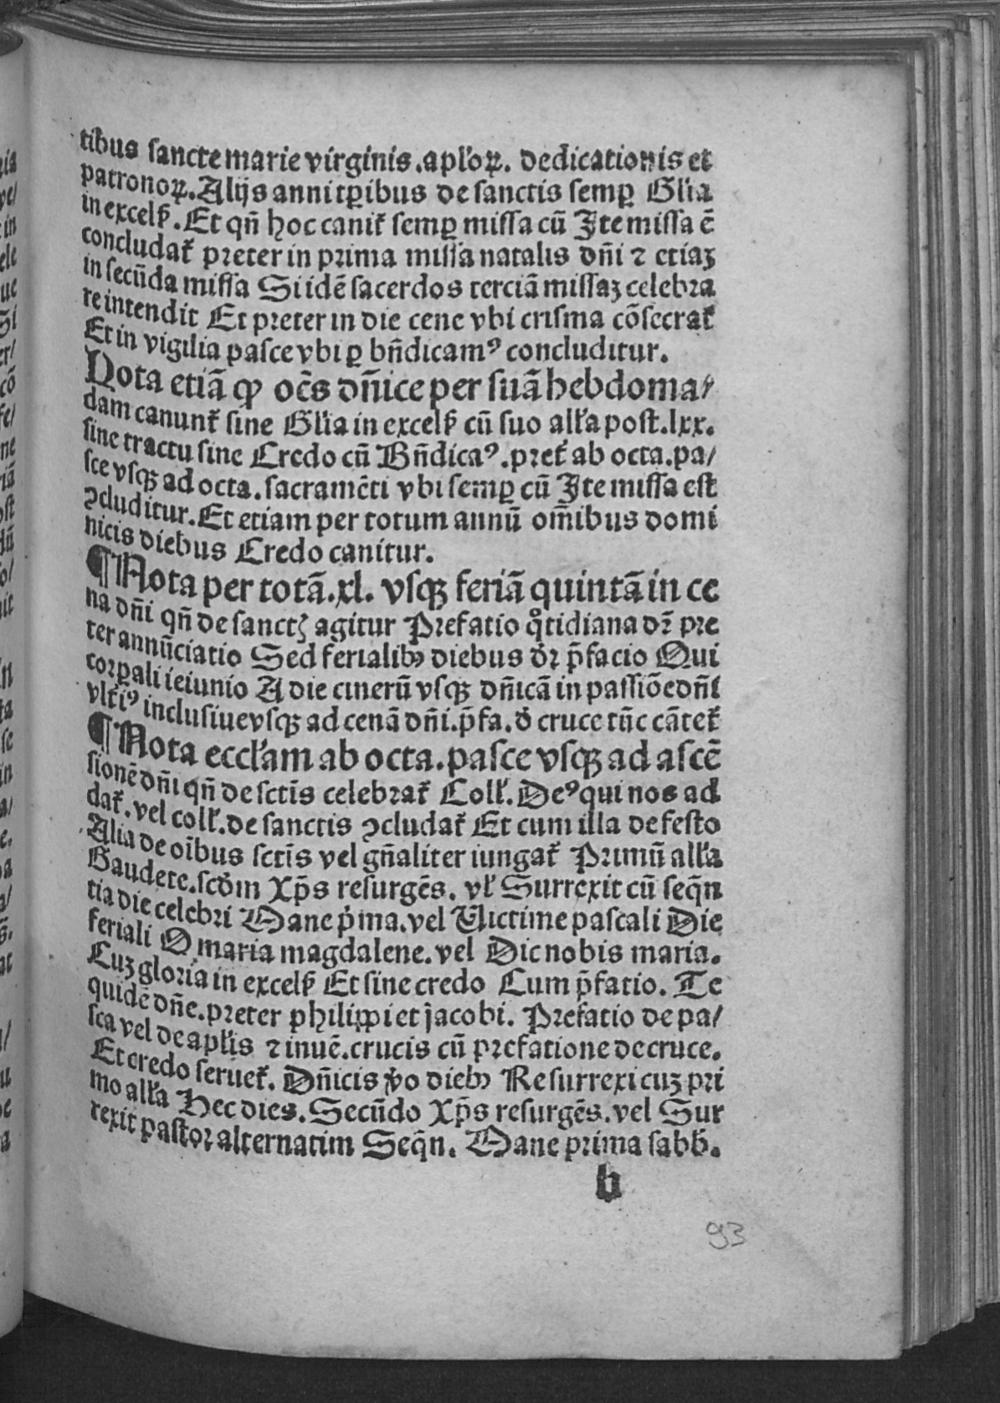 tibus sancte marie virginis .aploꝝ. dedicationis et
patronoꝝ. Alijs anni tꝑibus de sanctis semꝑ Glia
in excelß. Et qn̄ hoc canit᷑ semꝑ missa cū Ite missa ē
concludat᷑ preter in prima missa natalis dn̄i ⁊ etiaꝫ
in secūda missa Si idē sacerdos terciā missaꝫ celebra
re intendit Et preter in die cene vbi crisma cōsecrat᷑
Et in vigilia pasce vbi ꝑ bn̄dicamꝰ concluditur.
Nota etiā ꝙ oēs dn̄ice per suā hebdoma⸗
dam canunt᷑ sine Glia in excelß cū suo alla post .lxx.
sine tractu sine Credo cū Bn̄dicaꝰ. pret᷑ ab octa. pa/
sce vsqꝫ ad octa. sacramēti vbi semꝑ cū Ite missa est
ꝯcluditur. Et etiam per totum annū om̄ibus domi
nicis diebus Credo canitur.
¶ Nota per totā .xl. vsqꝫ feriā quintā in ce
na dn̄i qn̄ de sanctꝭ agitur Prefatio qͦtidiana dr̄ pre
ter annūciatio Sed ferialibꝫ diebus dr̄ p̄facio Qui
corꝑali ieiunio A die cinerū vsqꝫ dn̄icā in passiōe dn̄i
vlt᷑iꝰ inclusiue vsqꝫ ad cenā dn̄i. p̄fa. d̕ cruce tūc cātet᷑
¶ Nota eccl̕am ab octa. pasce vsqꝫ ad ascē
sionē dn̄i qn̄ de sctīs celebrat᷑ Coll̕. Deꝰ qui nos ad
dat᷑. vel coll̕. de sanctis ꝯcludat᷑ Et cum illa de festo
Alia de oībus sctīs vel gn̄aliter iungat᷑ Primū alla
Gaudete. scdm Xp̄s resurgēs. vl̕ Surrexit cū seqn̄
tia die celebri Mane p̄ma. vel Victime pascali Die
feriali O maria magdalene. vel Dic nobis maria.
Cuꝫ gloria in excelß Et sine credo Cum p̄fatio. Te
quidē dn̄e. preter philippi et jacobi. Prefatio de pa/
sca vel de aplis ⁊ inuē. crucis cū prefatione de cruce.
Et credo seruet᷑. Dn̄icis ꝟo diebꝫ Resurrexi cuꝫ pri
mo alla Hec dies. Secūdo Xp̄s resurgēs. vel Sur
rexit pastor alternatim Seqn̄. Mane prima sabb̄.
b
93